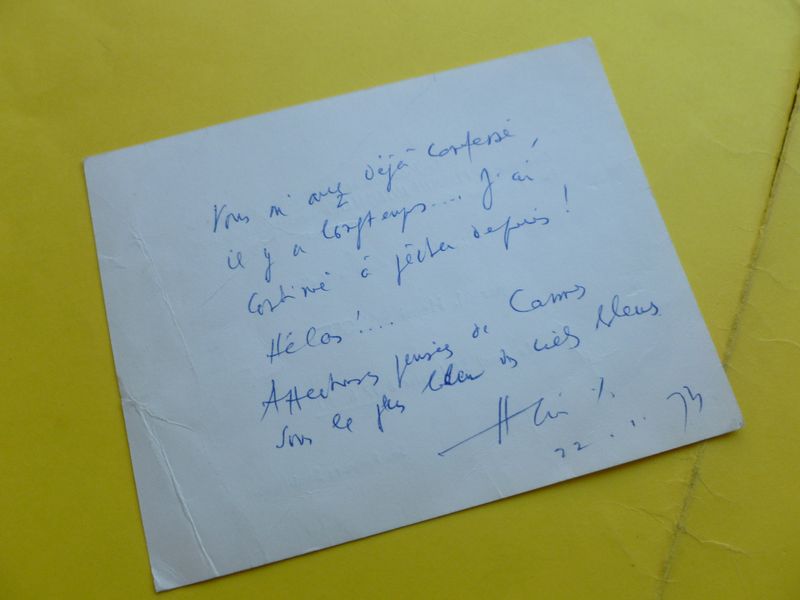 Vous m'avez déjà confessé,
il y a longtemps.... J'ai
continué à pécher depuis !
Hélas !....
Affectueuses pensées de Cannes
sous le plus bleu des ciels bleus
22.1.73